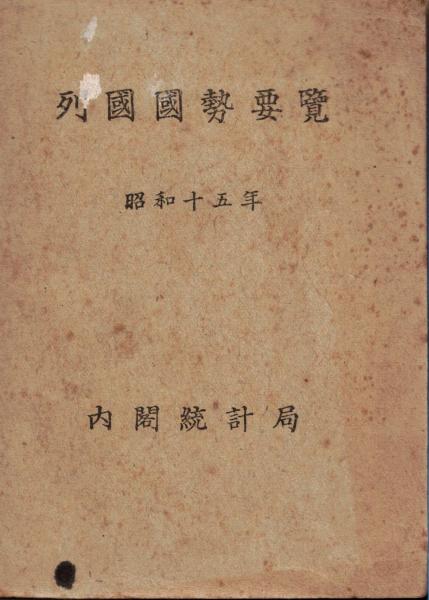 列國國勢要覽
昭和十五年
內閣統計局